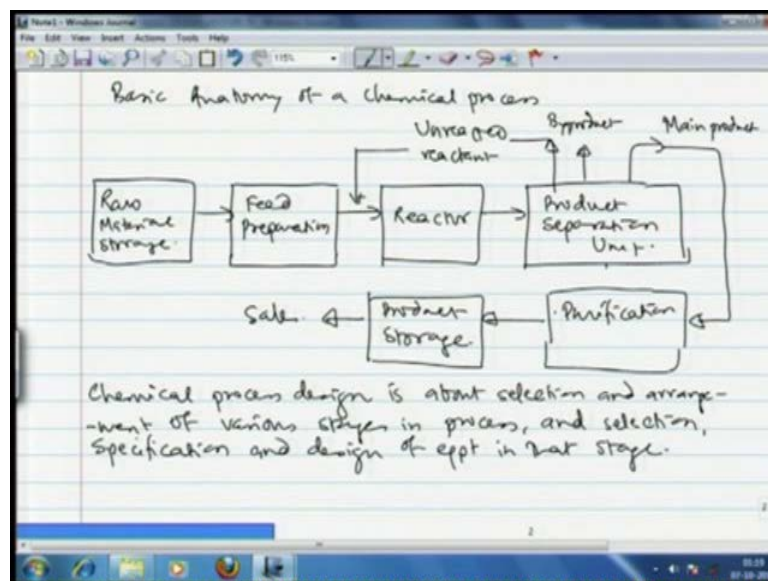 Note1 - Windows Journal
File Edit View Insert Actions Tools Help
115%
Basic Anatomy of a Chemical process
Unreacted
reactant
Byproduct
Main product
Raw
Material
Storage.
Feed
Preparation
Reactor
Product
Separation
Unit.
Sale.
Product
Storage.
Purification
Chemical process design is about selection and arrange-
-ment of various stages in process, and selection,
Specification and design of eppt in that stage.
2
2